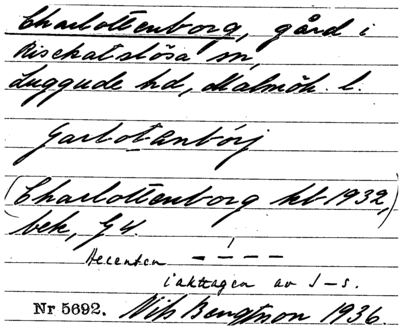 Charlottenborg, gård i
Risekatslösa sn,
Luggude hd, Malmöh. l.
Garlotanbórj
(Charlottenborg kb 1932,)
bek, G4.
Accenten – –́ – –
iakttagen av J–s.
Nr 5692. Nils Bengtson 1936.